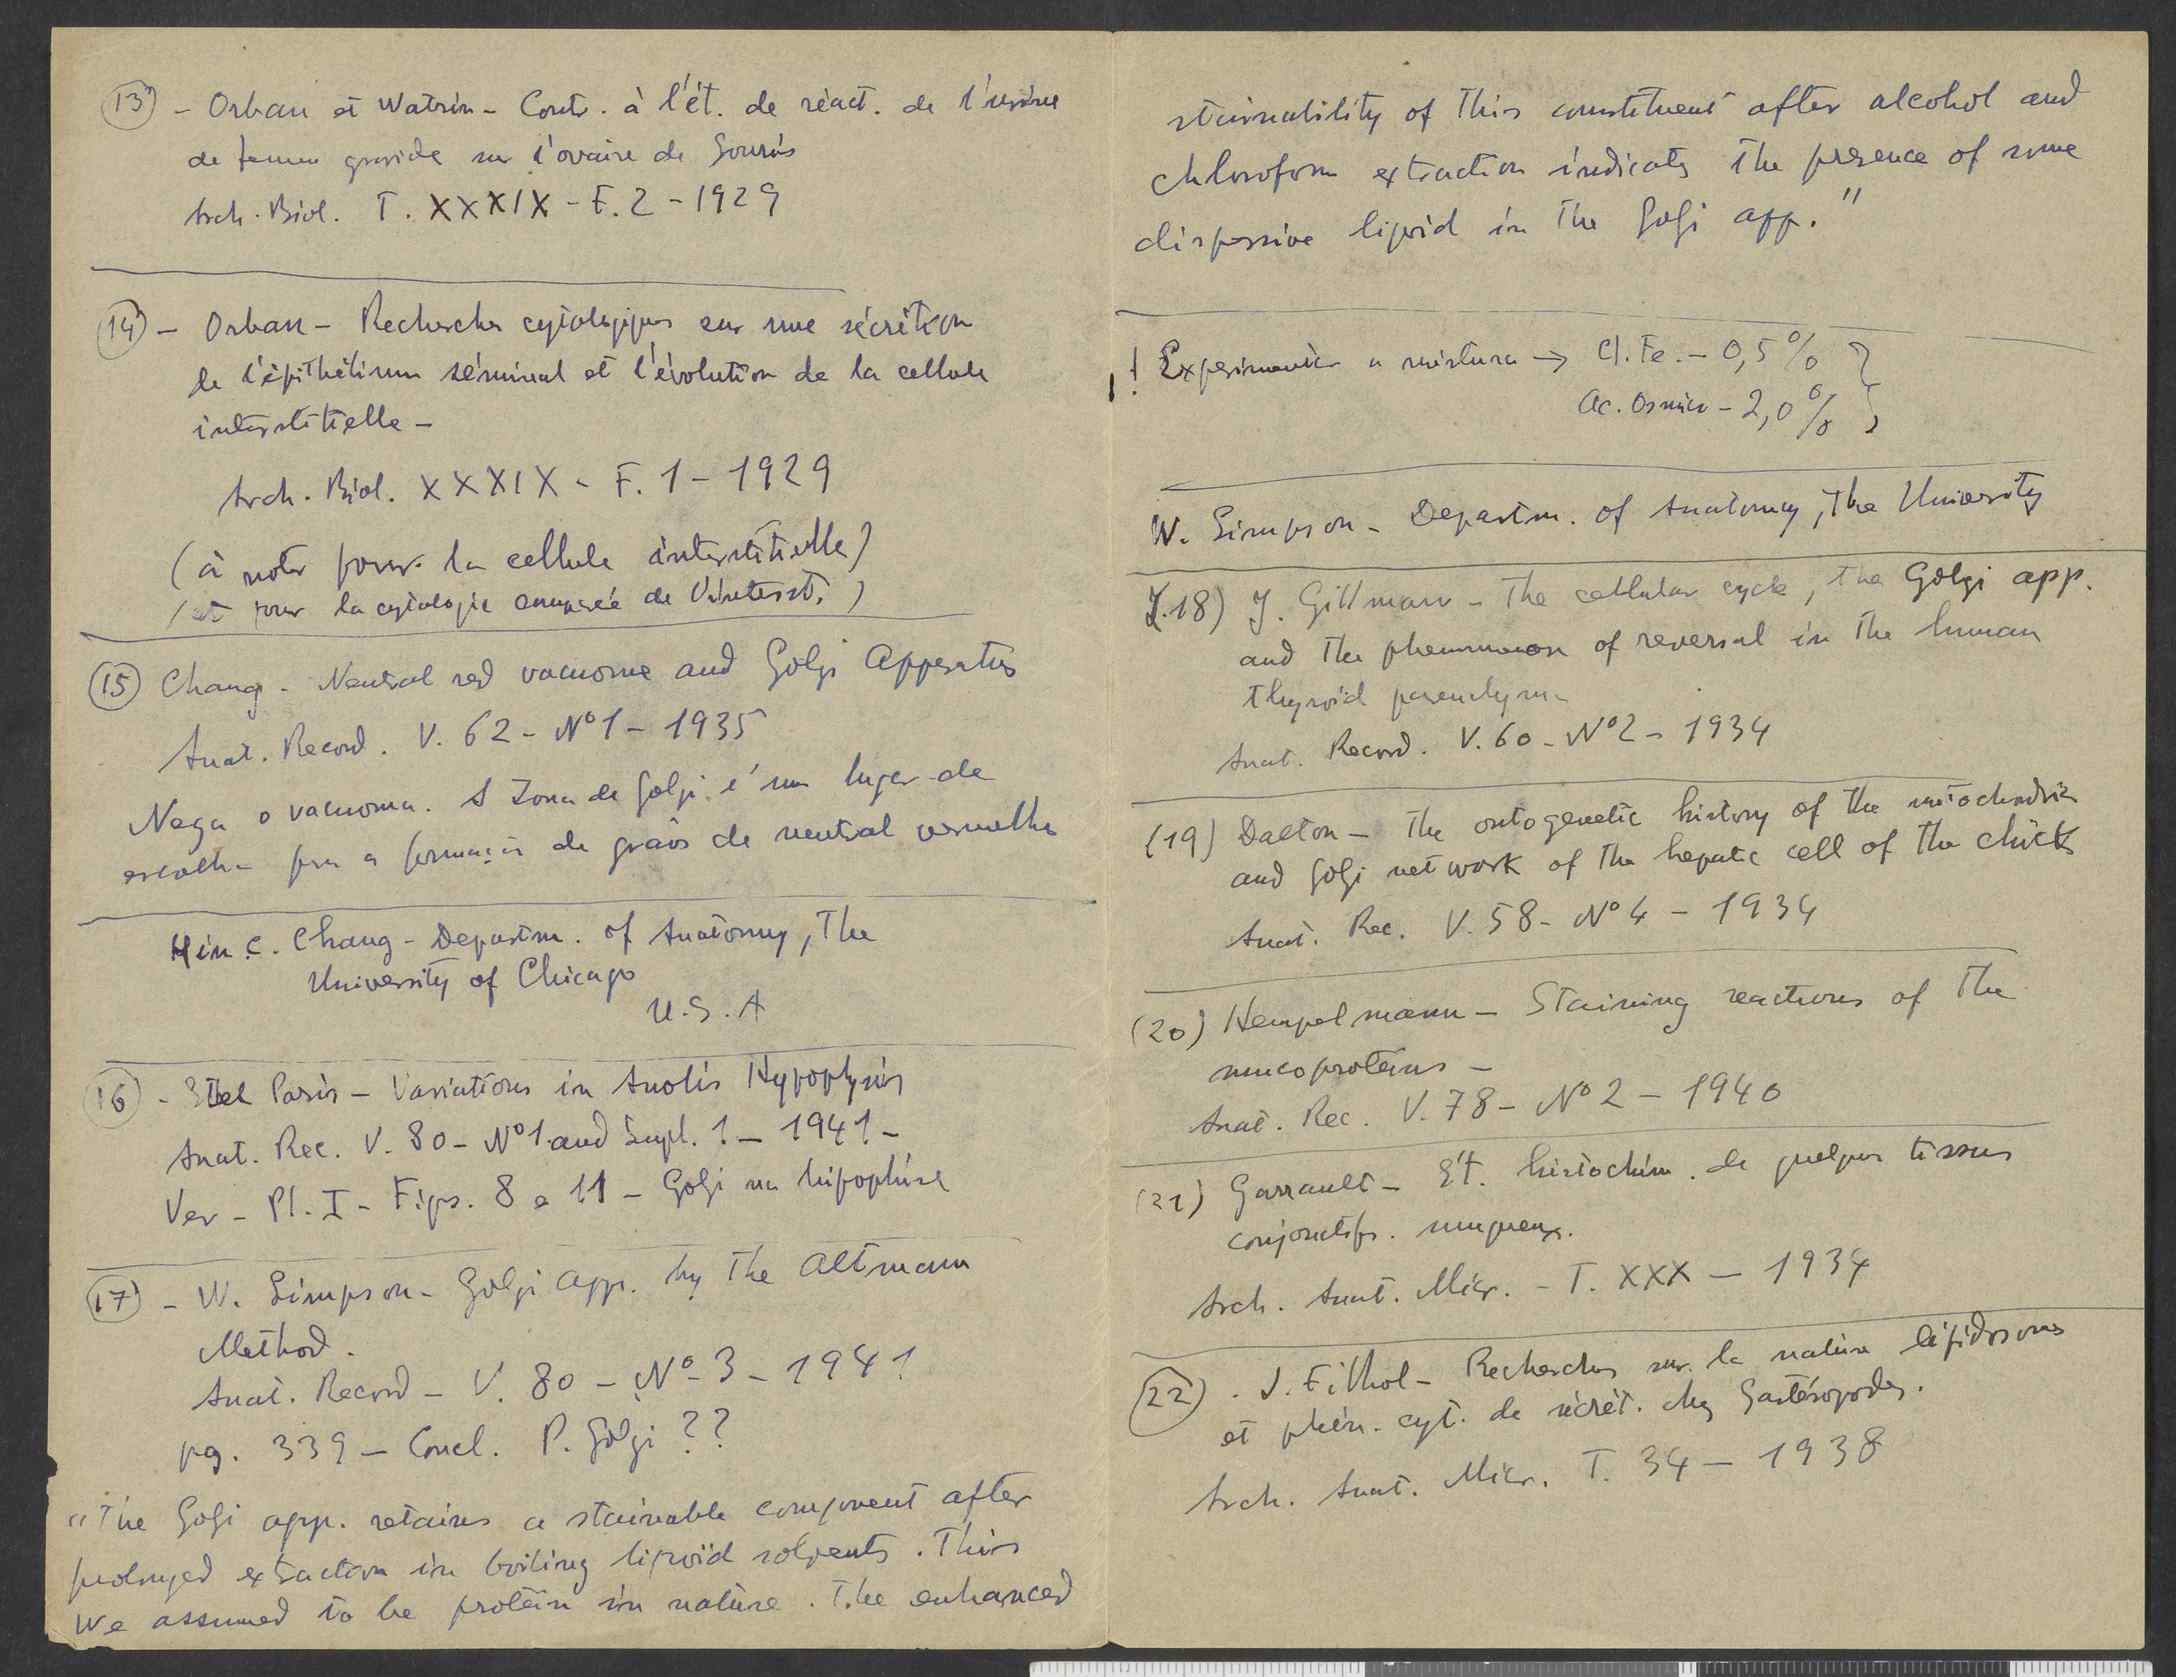 (13) - Orban et Watrin - Contr. à l'ét. de réact. de l'urine
de femme gravide sur l'ovaire de Souris
Arch. Biol. T. XXXIX - F. 2 - 1929
(14) - Orban - Recherches cytologiques sur une sécrétion
de l'épithélium séminal et l'évolution de la cellule
interstitielle -
Arch. Biol. XXXIX - F. 1 - 1929
(à noter pour la cellule interstitielle)
(et pour la cytologie comparée de l'interst.)
(15) Chang - Neutral red vacuome and Golgi Apparatus
Anat. Record. V. 62 - Nº 1 - 1935
Nega o vacuoma. A Zona de Golgi é um lugar de
escolha pra a formação de grãos de neutral vermelho
Hin C. Chang - Departm. of Anatomy, The
University of Chicago
U.S.A
(16) - Paris - Variations in Anolis Hypophysis
Anat. Rec. V. 80 - Nº 1 and Supl. 1 - 1941 -
Ver - Pl. I - Figs. 8 e 11 - Golgi na hipophise
(17) - W. Simpson - Golgi App. by the Altmann
Method.
Anat. Record - V. 80 - Nº 3 - 1941
pg. 339 - Concl. P. Golgi ??
"The Golgi app. retains a stainable component after
prolonged extraction in boiling lipoïd solvents. This
we assumed to be protein in nature. The enhanced
stainability of this constituent after alcohol and
chloroform extraction indicates the presence of some
dispersive lipoid in the Golgi app."
! Experimentar a mistura → Cl. Fe. - 0,5%
Ac. Osmico - 2,0%
W. Simpson - Departm. of Anatomy, The University
18) J. Gillman - The cellular cycle, the Golgi app.
and the phenomenon of reversal in the human
thyroid parenchym.
Anat. Record. V. 60 - Nº 2 - 1934
(19) Dalton - The ontogenetic history of the mitochodria
and Golgi network of the hepatic cell of the chick
Anat. Rec. V. 58 - Nº 4 - 1934
(20) Hempelmann - Staining reactions of the
mucoproteins -
Anat. Rec. V. 78 - Nº 2 - 1940
(21) Garrault - Ét. histochim. de quelques tissus
conjonctifs. muqueux.
Arch. Anat. Micr. - T. XXX - 1934
(22). J. Filhol - Recherches sur la nature lépidosomes
et phén. cyt. de sécrét. chez Gastéropodes.
Arch. Anat. Micr. T. 34 - 1938